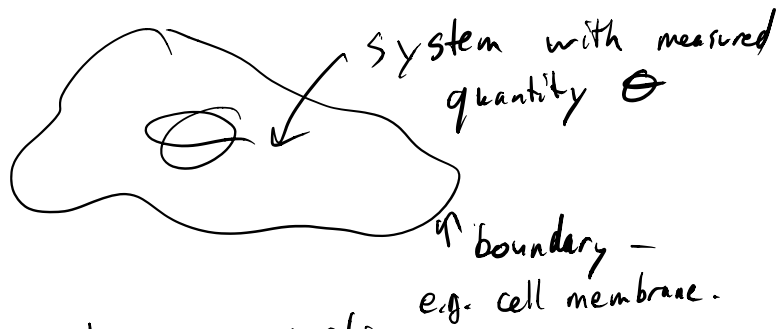 system with measured
quantity Θ
boundary –
e.g. cell membrane.